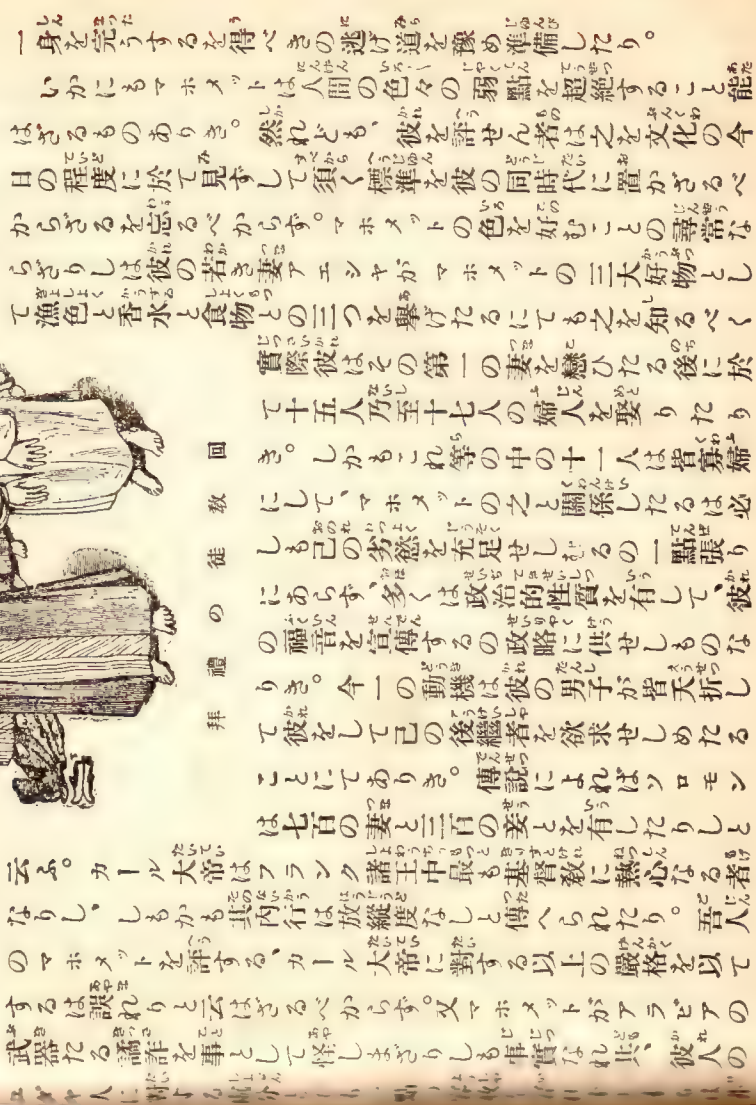 一身を完うするを得べきの逃げ道を豫め準備したり。
いかにもマホメットは人間の色々の弱點を超絶すること能
はざるものありき。然れども、彼を評せん者は之を文化の今
日の程度に於て見ずして須く標準を彼の同時代に置かざるべ
からざるを忘るべからず。マホメットの色を好むことの尋常な
らざりしは彼の若き妻アエシャがマホメットの三大好物とし
て漁色と香水と食物との三つを擧げたるにても之を知るべく
實際彼はその第一の妻を戀ひたる後に於
て十五人乃至十七人の婦人を娶りたり
き。しかもこれ等の中の十一人は皆寡婦
にして、マホメットの之と關係したるは必
しも己の劣慾を充足せしむるの一點張り
にあらず、多くは政治的性質を有して、彼
の福音を宣傳するの政略に供せしものな
りき。今一の動機は彼の男子が皆夭折し
て彼をして己の後繼者を欲求せしめたる
ことにてありき。傳說によればソロモン
は七百の妻と三百の妾とを有したりしと
云ふ。カール大帝はフランク諸王中最も基督敎に熱心なる者
なりし、しもかも其內行は放縱度なしと傳へられたり。吾人
のマホメットを評する、カール大帝に對する以上の嚴格を以て
するは誤れりと云はざるべからず。又マホメットがアラビアの
武器たる譎詐を事として怪しまざりしも事實なれ共、彼人の
回敎徒の禮拜